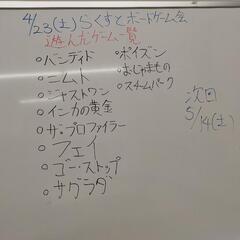 4/23(土)らくすとボードゲーム会
遊んだゲーム一覧
○バンディド
○ニムト
○ジャストワン
○インカの黄金
○ザ・プロファイラー
○フェイ
○ゴー・ストップ
○サグラダ
○ポイズン
○おじゃまもの
○スチームパーク
次回
5/14(土)